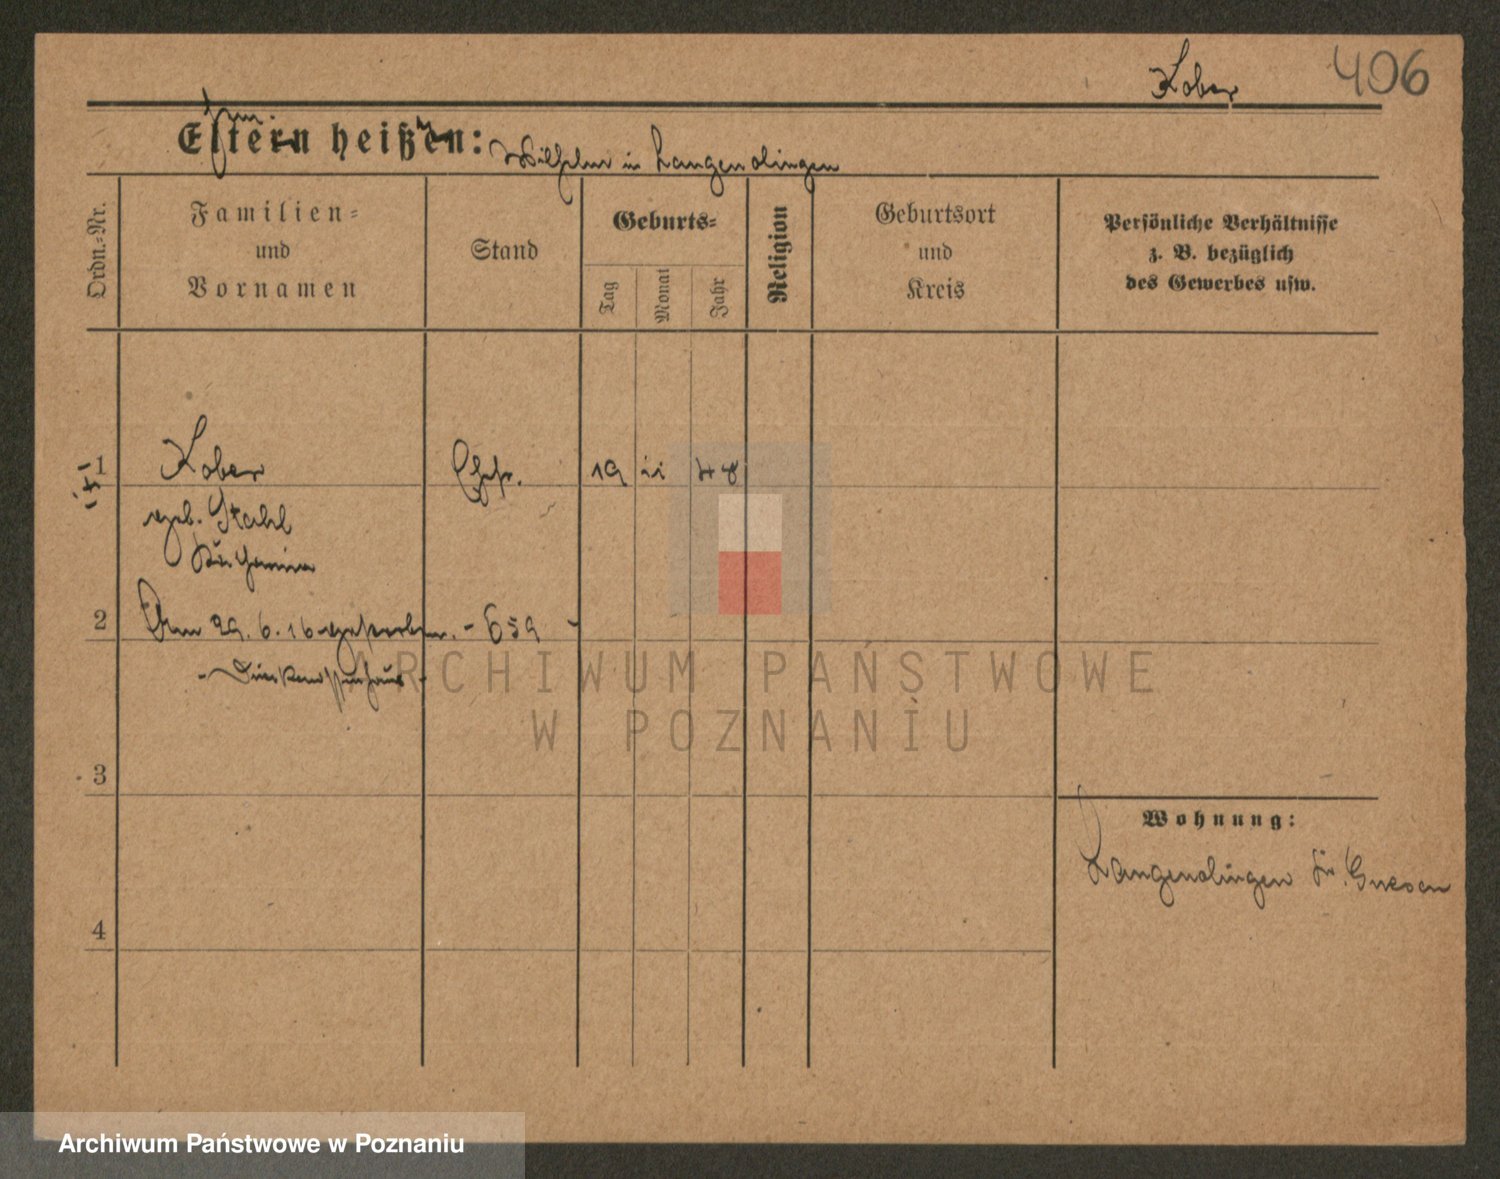 Kober 406
Eltern heißen: Wilhelm in Langenolingen
Ordn.-Nr.
Familien-
und
Vornamen
Stand
Geburts-
Tag
Monat
Jahr
Religion
Geburtsort
und
Kreis
Persönliche Verhältnisse
z. B. bezüglich
des Gewerbes usw.
1 Kober Ehefr. 19 11 48
geb. Stahl
2 Am 29. 6. 16 gestorben. - 659 -
- Diakonissenhaus -
ARCHIWUM PAŃSTWOWE
W POZNANIU
3
Wohnung:
Langenolingen Kr. Gnesen
4
Archiwum Państwowe w Poznaniu